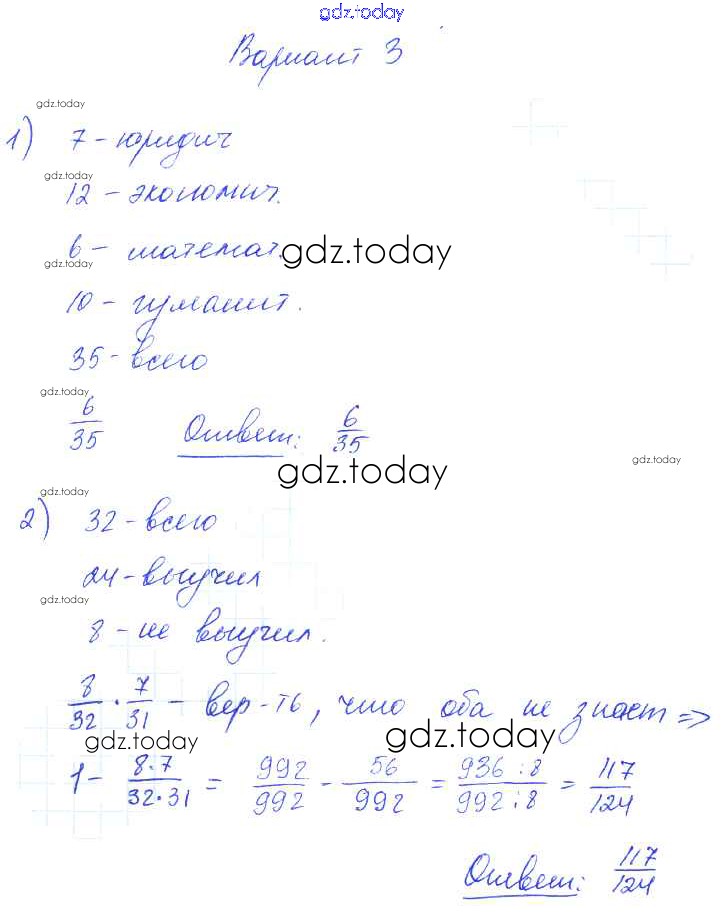 gdz.today
Вариант 3
gdz.today
1) 7 - юридич
gdz.today
12 - экономич.
6 - математ.
gdz.today
gdz.today
10 - гуманит.
35 - всего
gdz.today
6/35 Ответ: 6/35
gdz.today
gdz.today
gdz.today
2) 32 - всего
24 - выучил
gdz.today
8 - не выучил.
8/32 · 7/31 - вер-ть, что оба не знает ⇒
gdz.today
gdz.today
1 - 8·7/32·31 = 992/992 - 56/992 = 936:8/992:8 = 117/124
Ответ: 117/124